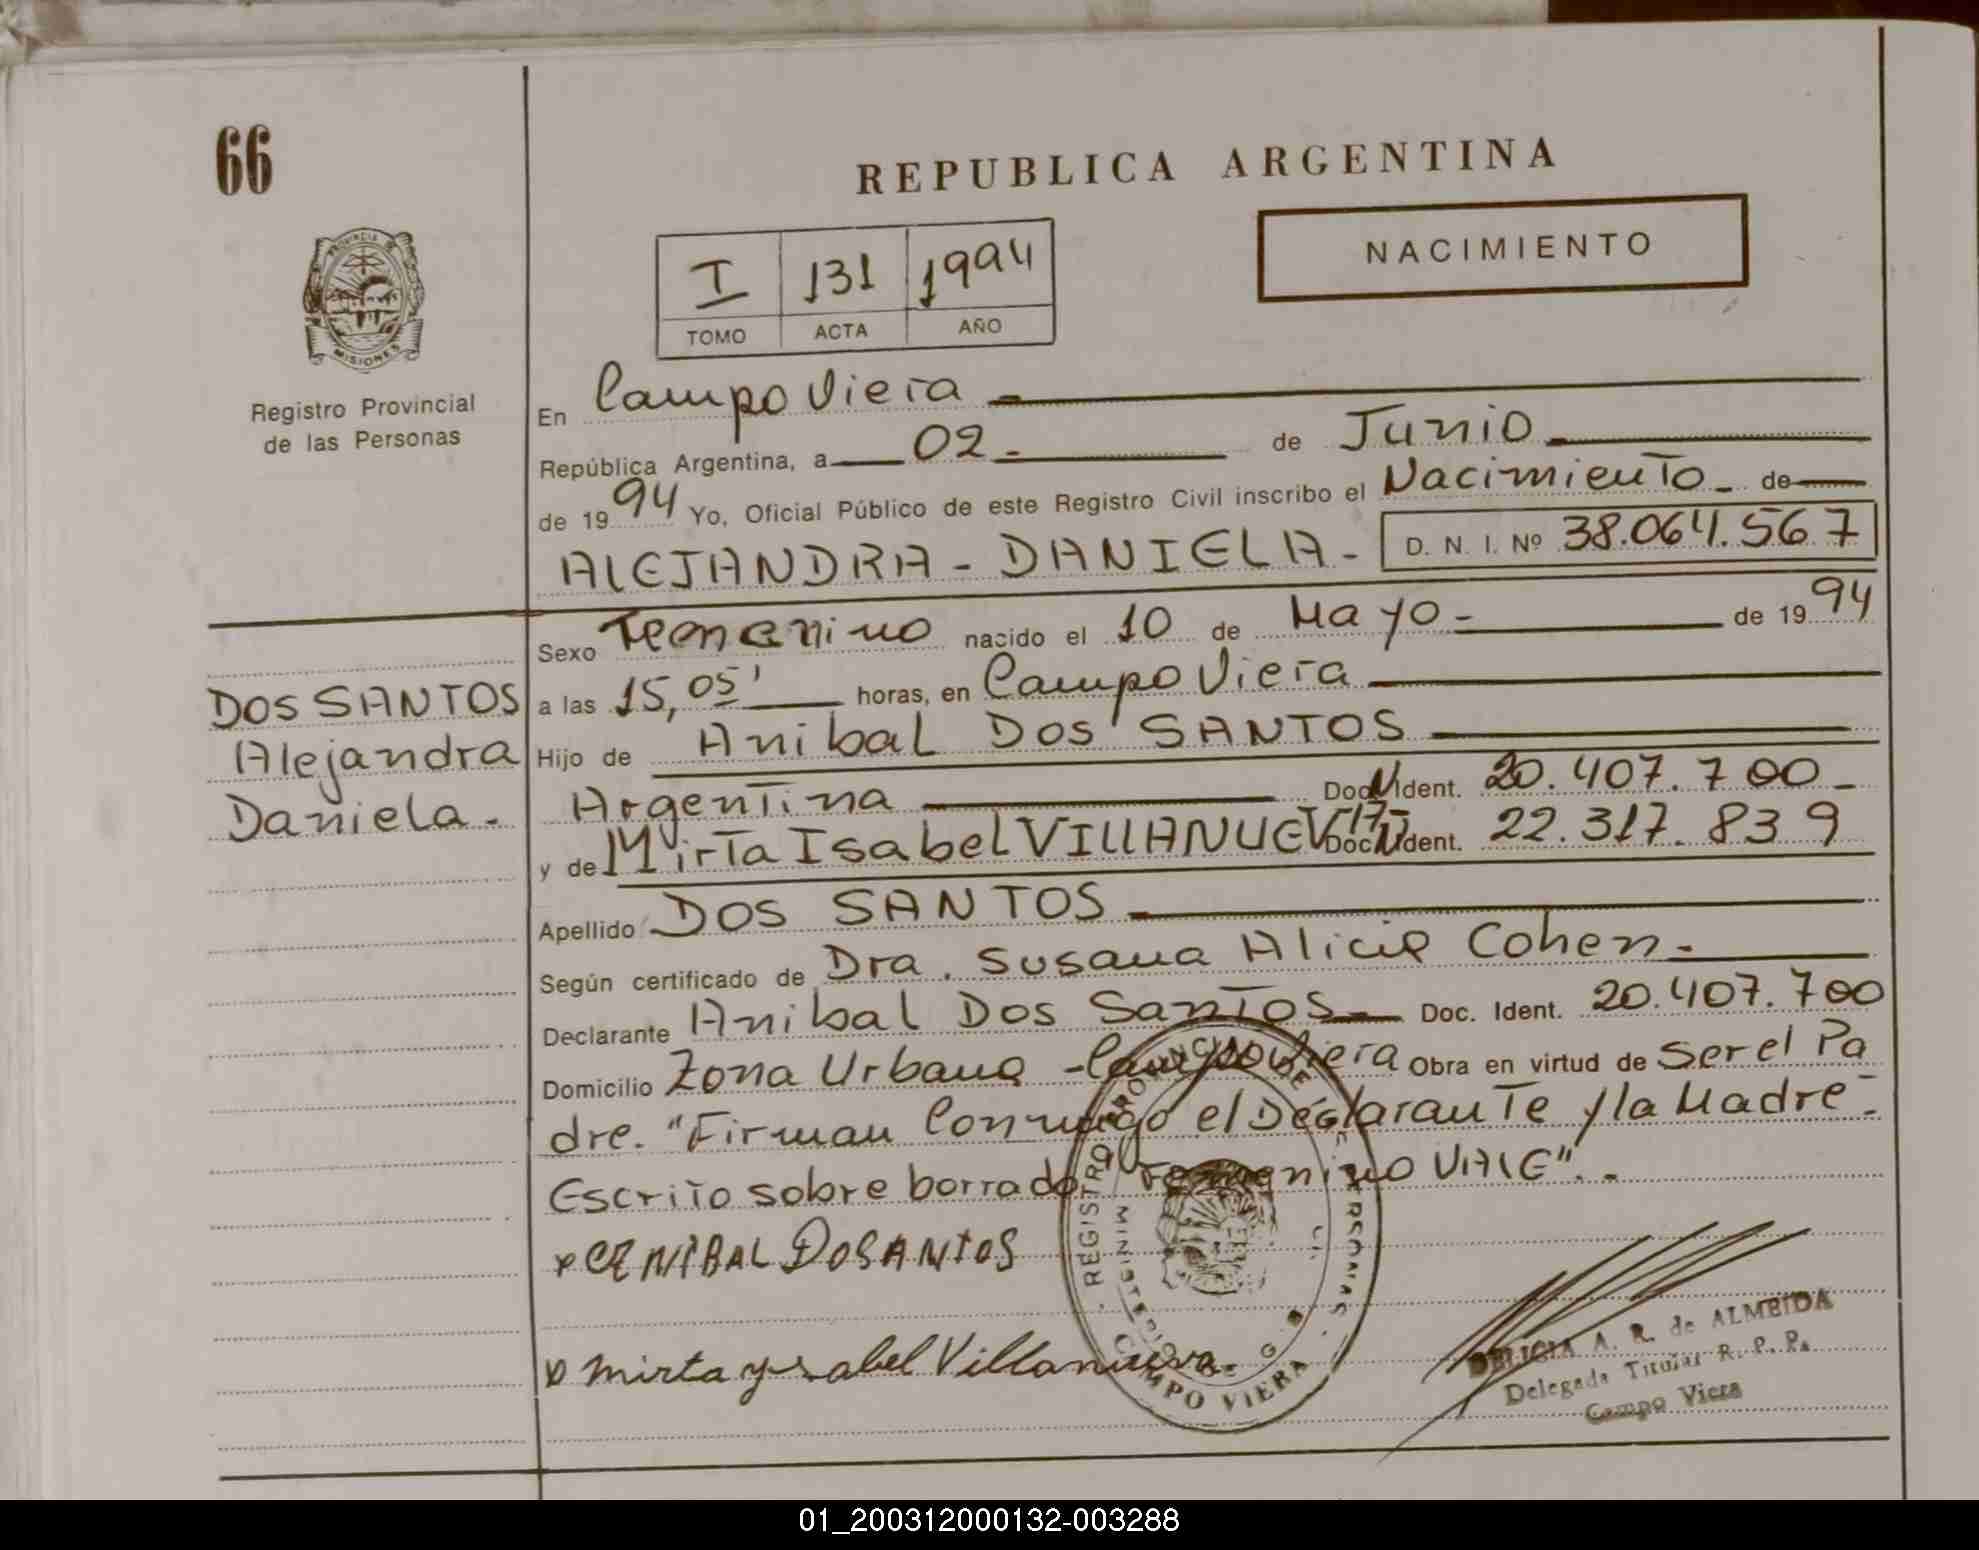 66
REPUBLICA ARGENTINA
NACIMIENTO
I 131 1994
TOMO ACTA AÑO
PROVINCIA DE MISIONES
Registro Provincial
de las Personas
En Campo Viera
República Argentina, a 02 de Junio
de 1994 Yo, Oficial Público de este Registro Civil inscribo el Nacimiento de
ALEJANDRA - DANIELA - D. N. I. Nº 38.064.567
Sexo Femenino nacido el 10 de Mayo - de 1994
DOS SANTOS
Alejandra
Daniela.
a las 15,05' horas, en Campo Viera
Hijo de Anibal DOS SANTOS
Argentina Doc. Ident. 20.407.700 -
y de Mirta Isabel VILLANUEVA Doc. Ident. 22.317.839
Apellido DOS SANTOS
Según certificado de Dra. Susana Alicia Cohen.
Declarante Anibal Dos Santos Doc. Ident. 20.407.700
Domicilio Zona Urbana - Campo Viera Obra en virtud de Ser el Pa
dre. "Firman Conmigo el Declarante y la Madre -
Escrito sobre borrado "Femenino VALE". -
ANIBAL DOSANTOS
mirta ysabel Villanueva
REGISTRO PROVINCIAL DE PERSONAS
MINISTERIO DE G.
CAMPO VIERA
DELICIA A. R. de ALMEIDA
Delegada Titular R. P. P.
Campo Viera
01_200312000132-003288